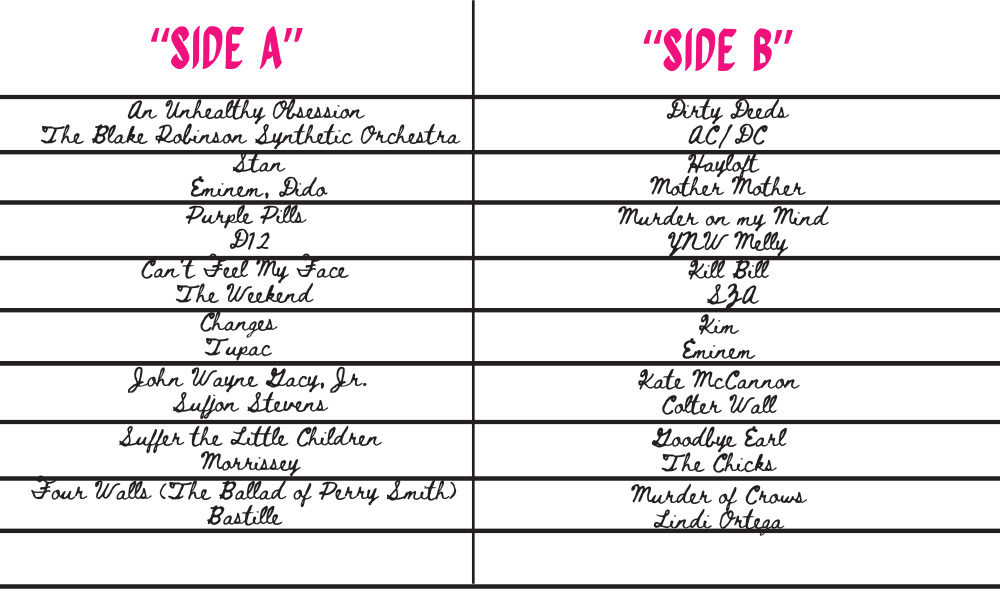 “SIDE A”
An Unhealthy Obsession
The Blake Robinson Synthetic Orchestra
Stan
Eminem, Dido
Purple Pills
D12
Can't Feel My Face
The Weekend
Changes
Tupac
John Wayne Gacy, Jr.
Sufjon Stevens
Suffer the Little Children
Morrissey
Four Walls (The Ballad of Perry Smith)
Bastille
“SIDE B”
Dirty Deeds
AC/DC
Hayloft
Mother Mother
Murder on my Mind
YNW Melly
Kill Bill
SZA
Kim
Eminem
Kate McCannon
Colter Wall
Goodbye Earl
The Chicks
Murder of Crows
Lindi Ortega